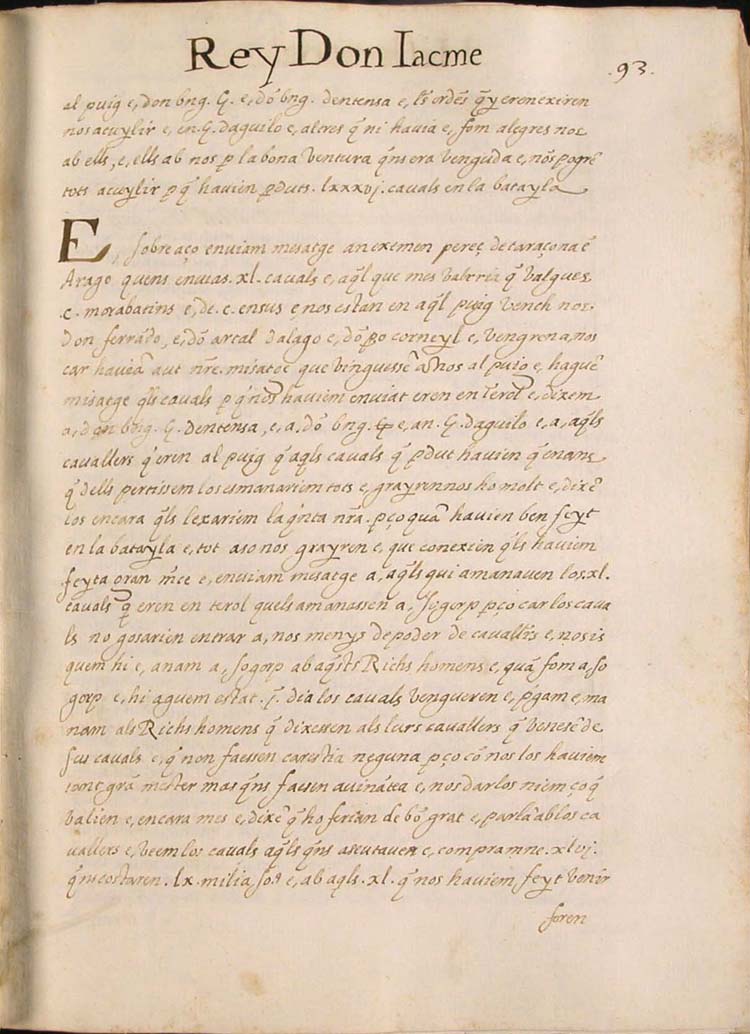 Rey Don Iacme
.93.
al puig e, don bng. G. e, dō bng. dentensa e, ls ordēs q̄y eren exiren
nos acuylir e, en. G. daguilo e, altres q̄ ni havia e, fom alegres nos
ab ells, e, ells ab nos p la bona ventura q̄ns era venguda e, nōs pogrē
tots acuylir p q̄ havien pduts. lxxxvj. cavals en la batayla
E, sobre aço enviam mesatge an exemen pereç de taraçona ē
Arago quens envias .xl. cavals e, aq̄l que mes valeria q̄ valgues
.c. morabatins e, de .c. en sus e nos estan en aq̄l puig vench nos
don ferrādo, e, dō artal dalago e, dō po corneyl e, vengren a, nos
car havieā aut nr̄e. misatge que vinguessē a nos al puig e, haguē
misatge q̄ls cavals p q̄ nos haviem enviat eren en Terol e, dixem
a, don bng. G. Dentensa, e, a, dō bng. e, an. G. daguilo e, a, aq̄ls
cavallers q̄ eren al puig q̄ aq̄ls cavals q̄ pdut havien q̄ enans
q̄ dells partissem los esmanariem tots e, grayrennos ho molt e, dixē
los encara q̄ls lexariem la q̄nta nr̄a. pço quā havien ben feyt
en la batayla e, tot aso nos grayren e, que conexien q̄ls haviem
feyta gran m̄ce e, enviam mesatge a, aq̄ls qui amanaven los .xl.
cavals q̄ eren en terol quels amanassen a, Sogorp pço car los cava
ls no gosarien entrar a, nos menys de poder de cavallr̄s e, nos is
quem hi e, anam a, sogorp ab aq̄sts Richs homens e, quā fom a, so
gorp e, hi aguem estat .j. dia los cavals vengueren e, pgam e, ma
nam als Richs homens q̄ dixessen als lurs cavallers q̄ venesē de
sus cavals e, q̄ non faessen carestia neguna pço cō nos los haviem
tant grā mester mas q̄ns faesen avinātea e, nos darlos niem ço q̄
valien e, encara mes e, dixē q̄ ho ferian de bō grat e, parlā ab los ca
vallers e, veem los cavals aq̄ls q̄ns aseutaven e, compramne .xlvj.
q̄ns costaren .lx. milia, sos e, ab aq̄ls .xl. q̄ nos haviem feyt venir
foren